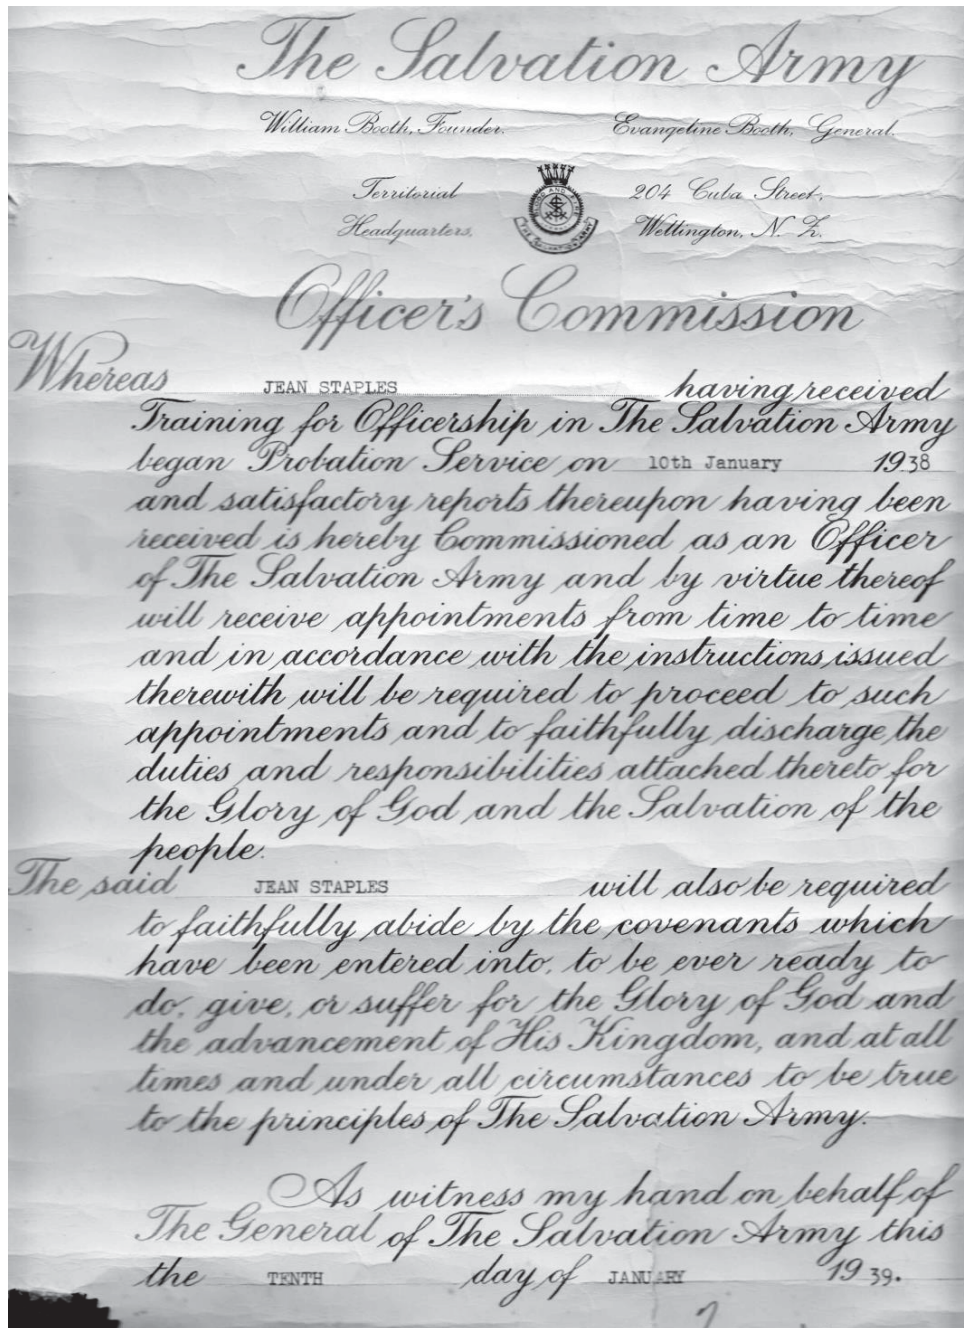 The Salvation Army
William Booth, Founder. Evangeline Booth, General.
Territorial 204 Cuba Street,
Headquarters, Wellington, N. Z.
BLOOD AND FIRE
THE SALVATION ARMY
Officer's Commission
Whereas JEAN STAPLES having received
Training for Officership in The Salvation Army
began Probation Service on 10th January 1938
and satisfactory reports thereupon having been
received is hereby Commissioned as an Officer
of The Salvation Army and by virtue thereof
will receive appointments from time to time
and in accordance with the instructions issued
therewith will be required to proceed to such
appointments and to faithfully discharge the
duties and responsibilities attached thereto for
the Glory of God and the Salvation of the
people.
The said JEAN STAPLES will also be required
to faithfully abide by the covenants which
have been entered into, to be ever ready to
do, give, or suffer for the Glory of God and
the advancement of His Kingdom, and at all
times and under all circumstances to be true
to the principles of The Salvation Army.
As witness my hand on behalf of
The General of The Salvation Army this
the TENTH day of JANUARY 1939.